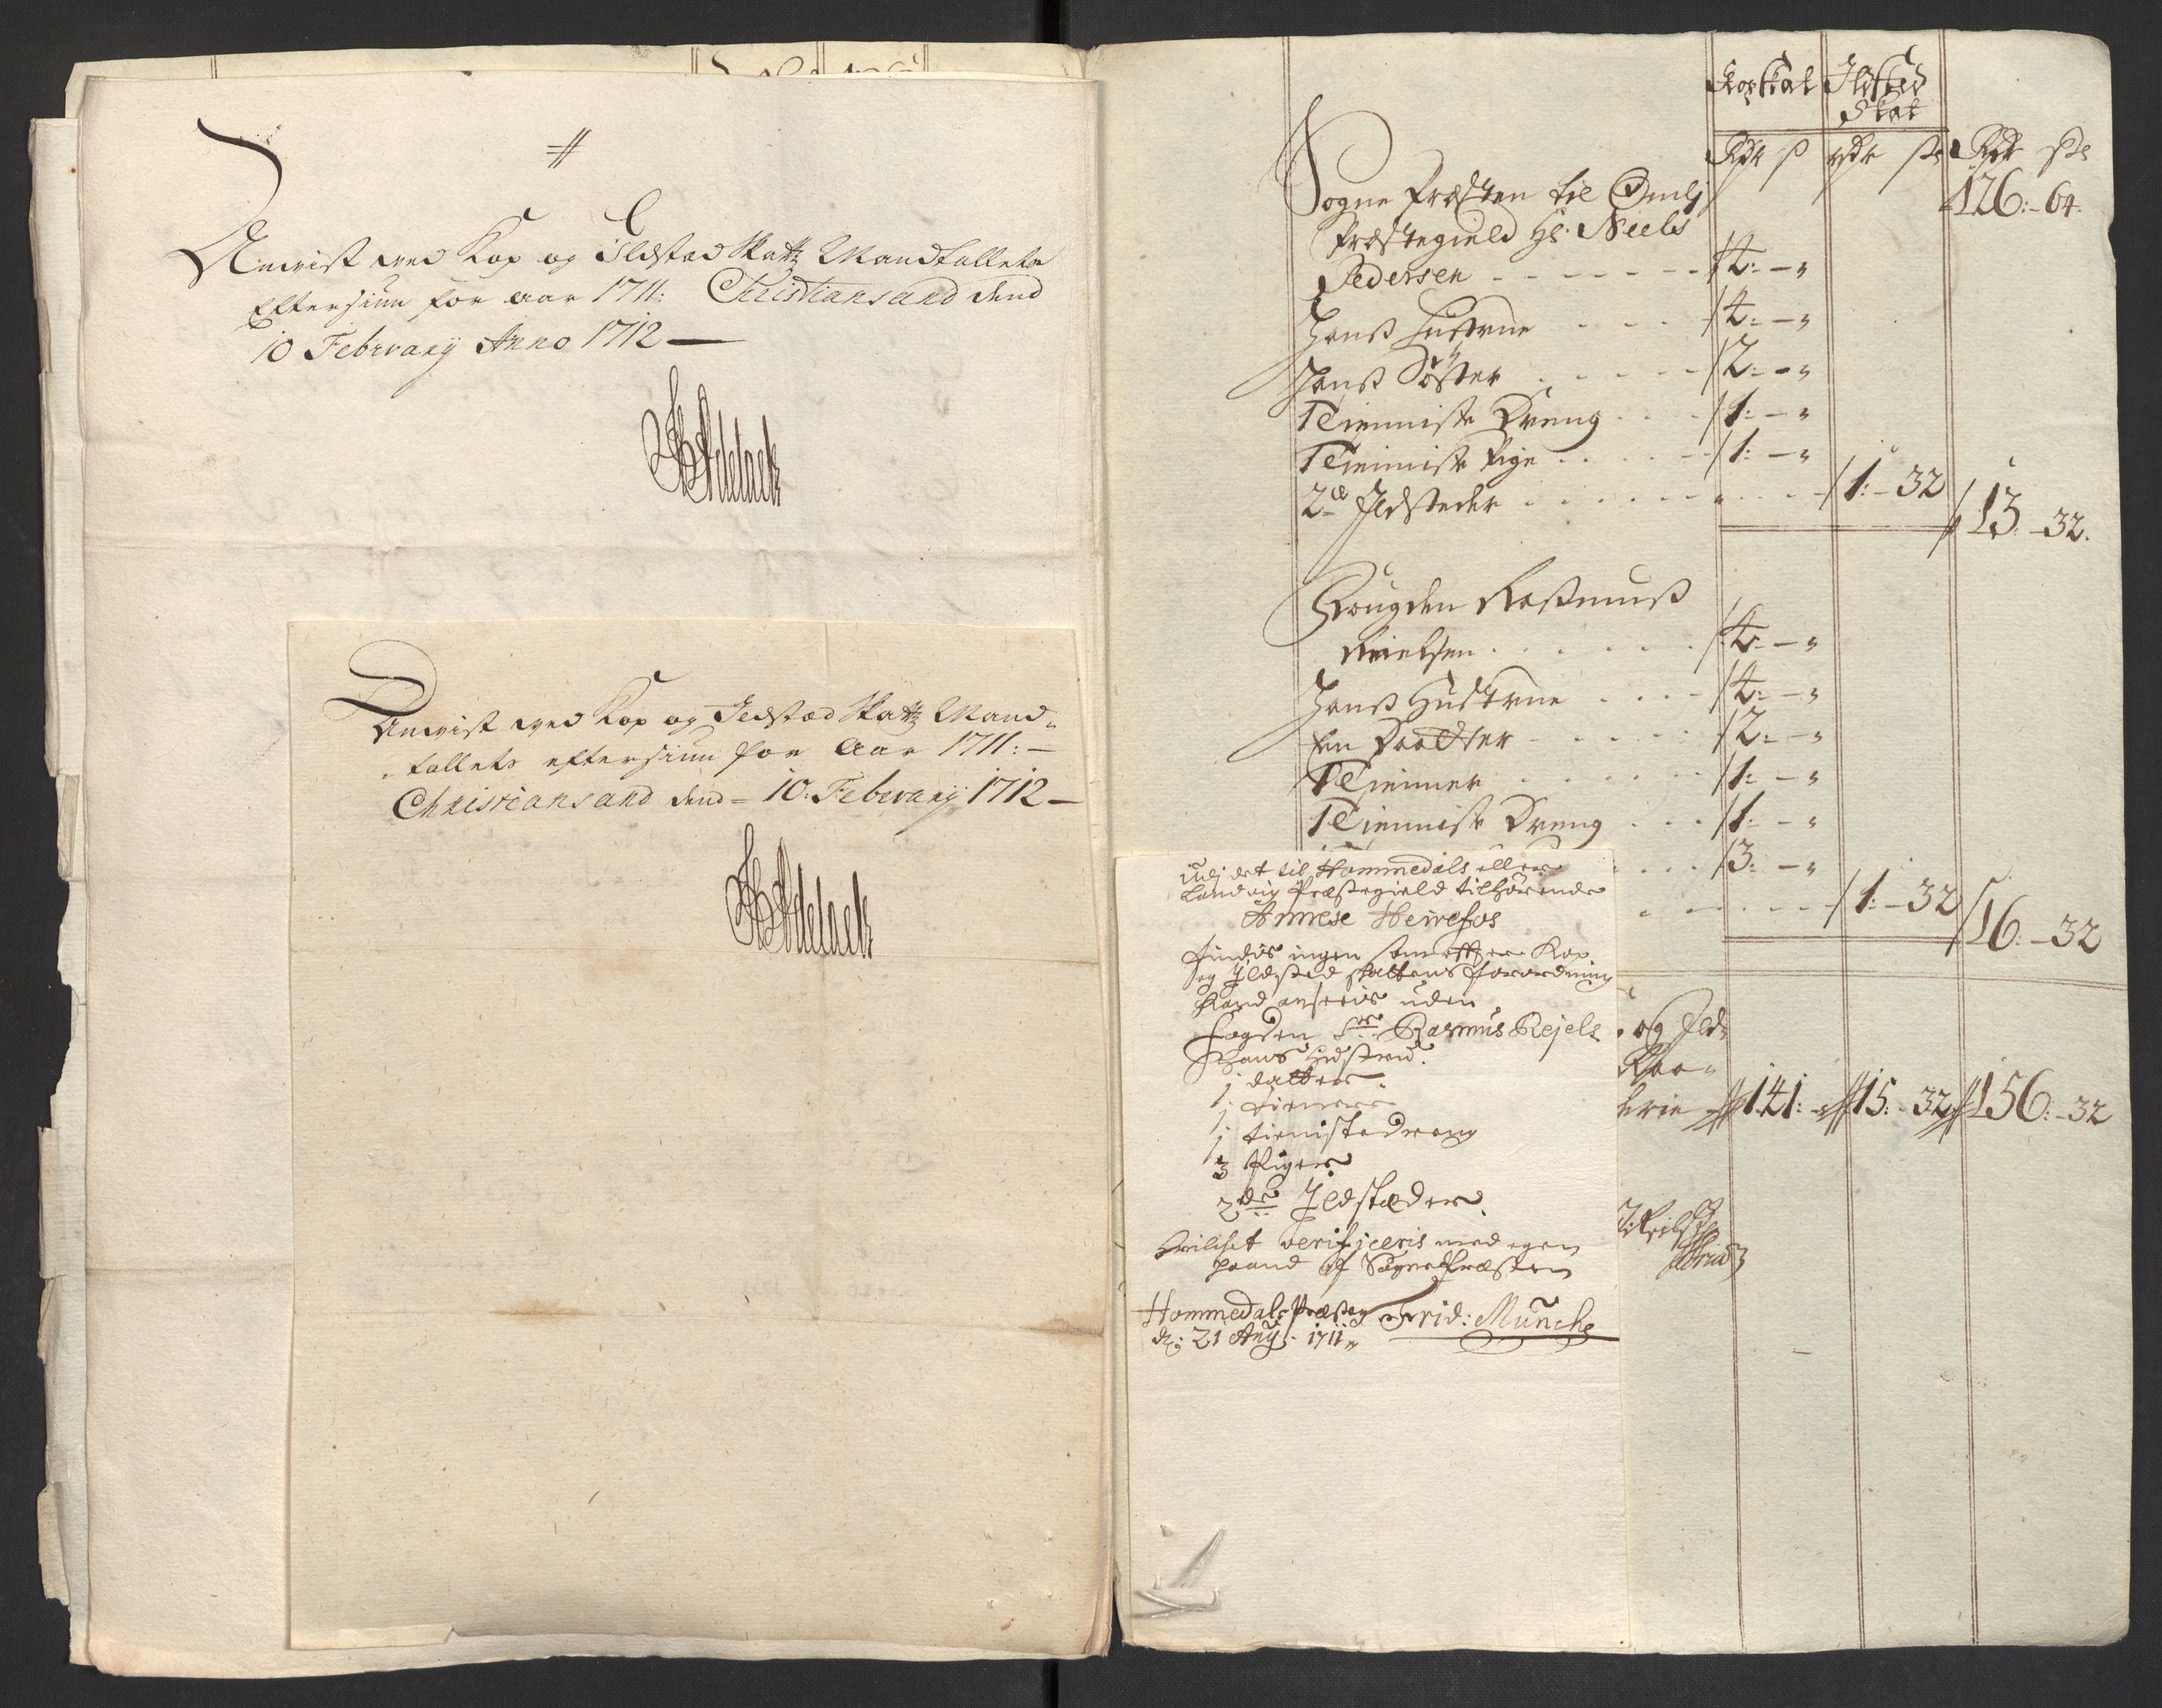 E
Anvist ved Kop og Ildsted Skatt Mandtallets
Eftersiun for aar 1711: Christiansand dend
10 Februarij Anno 1712
Anvist ved Kop og Ildsted Skatt Mand-
tallets eftersiun for Aar 1711:
Christiansand dend 10: Februarij 1712
Kopskat Ildsted
Skat
Rdr ß rdr ß Rdr ß
126:-64.
Sogne Præsten til
Præstegield Hr. Niels
Pedersen - - - 4: -
Hanß Hustrue - - - 4: -
Hanß Søster - - - 2: -
1 Tienniste Dreng - - - 1: -
1 Tienniste Pige - - - 1: -
2de Ildsteder - - - 1: - 32
13: - 32.
Fougden Rasmuß
Nielsen - - - 4: -
Hanß Hustrue - - - 4: -
En Daatter - - - 2: -
1 Tienner - - - 1: -
1 Tienniste Dreng - - - 1: -
3: -
1: - 32
16: - 32
og Ild-
141: 15: - 32 156: - 32
Udj det til Hommedals eller
Landvig Præstegield tilhørende
Annexe Heirefos
findis ingen som efter Kop
og Ildsted skattens forordning
kand ansees uden
fogden Sr. Rasmus Rejels
Hans Hustrue.
1 datter.
1 tienner
1 tienistedreng
3 Piger
2de Ildstæder.
Hvilket verificeris med egen
haand af Sogne Præsten
Hommedals Præstegd Frid: Munch
d: 21 Aug: 1711